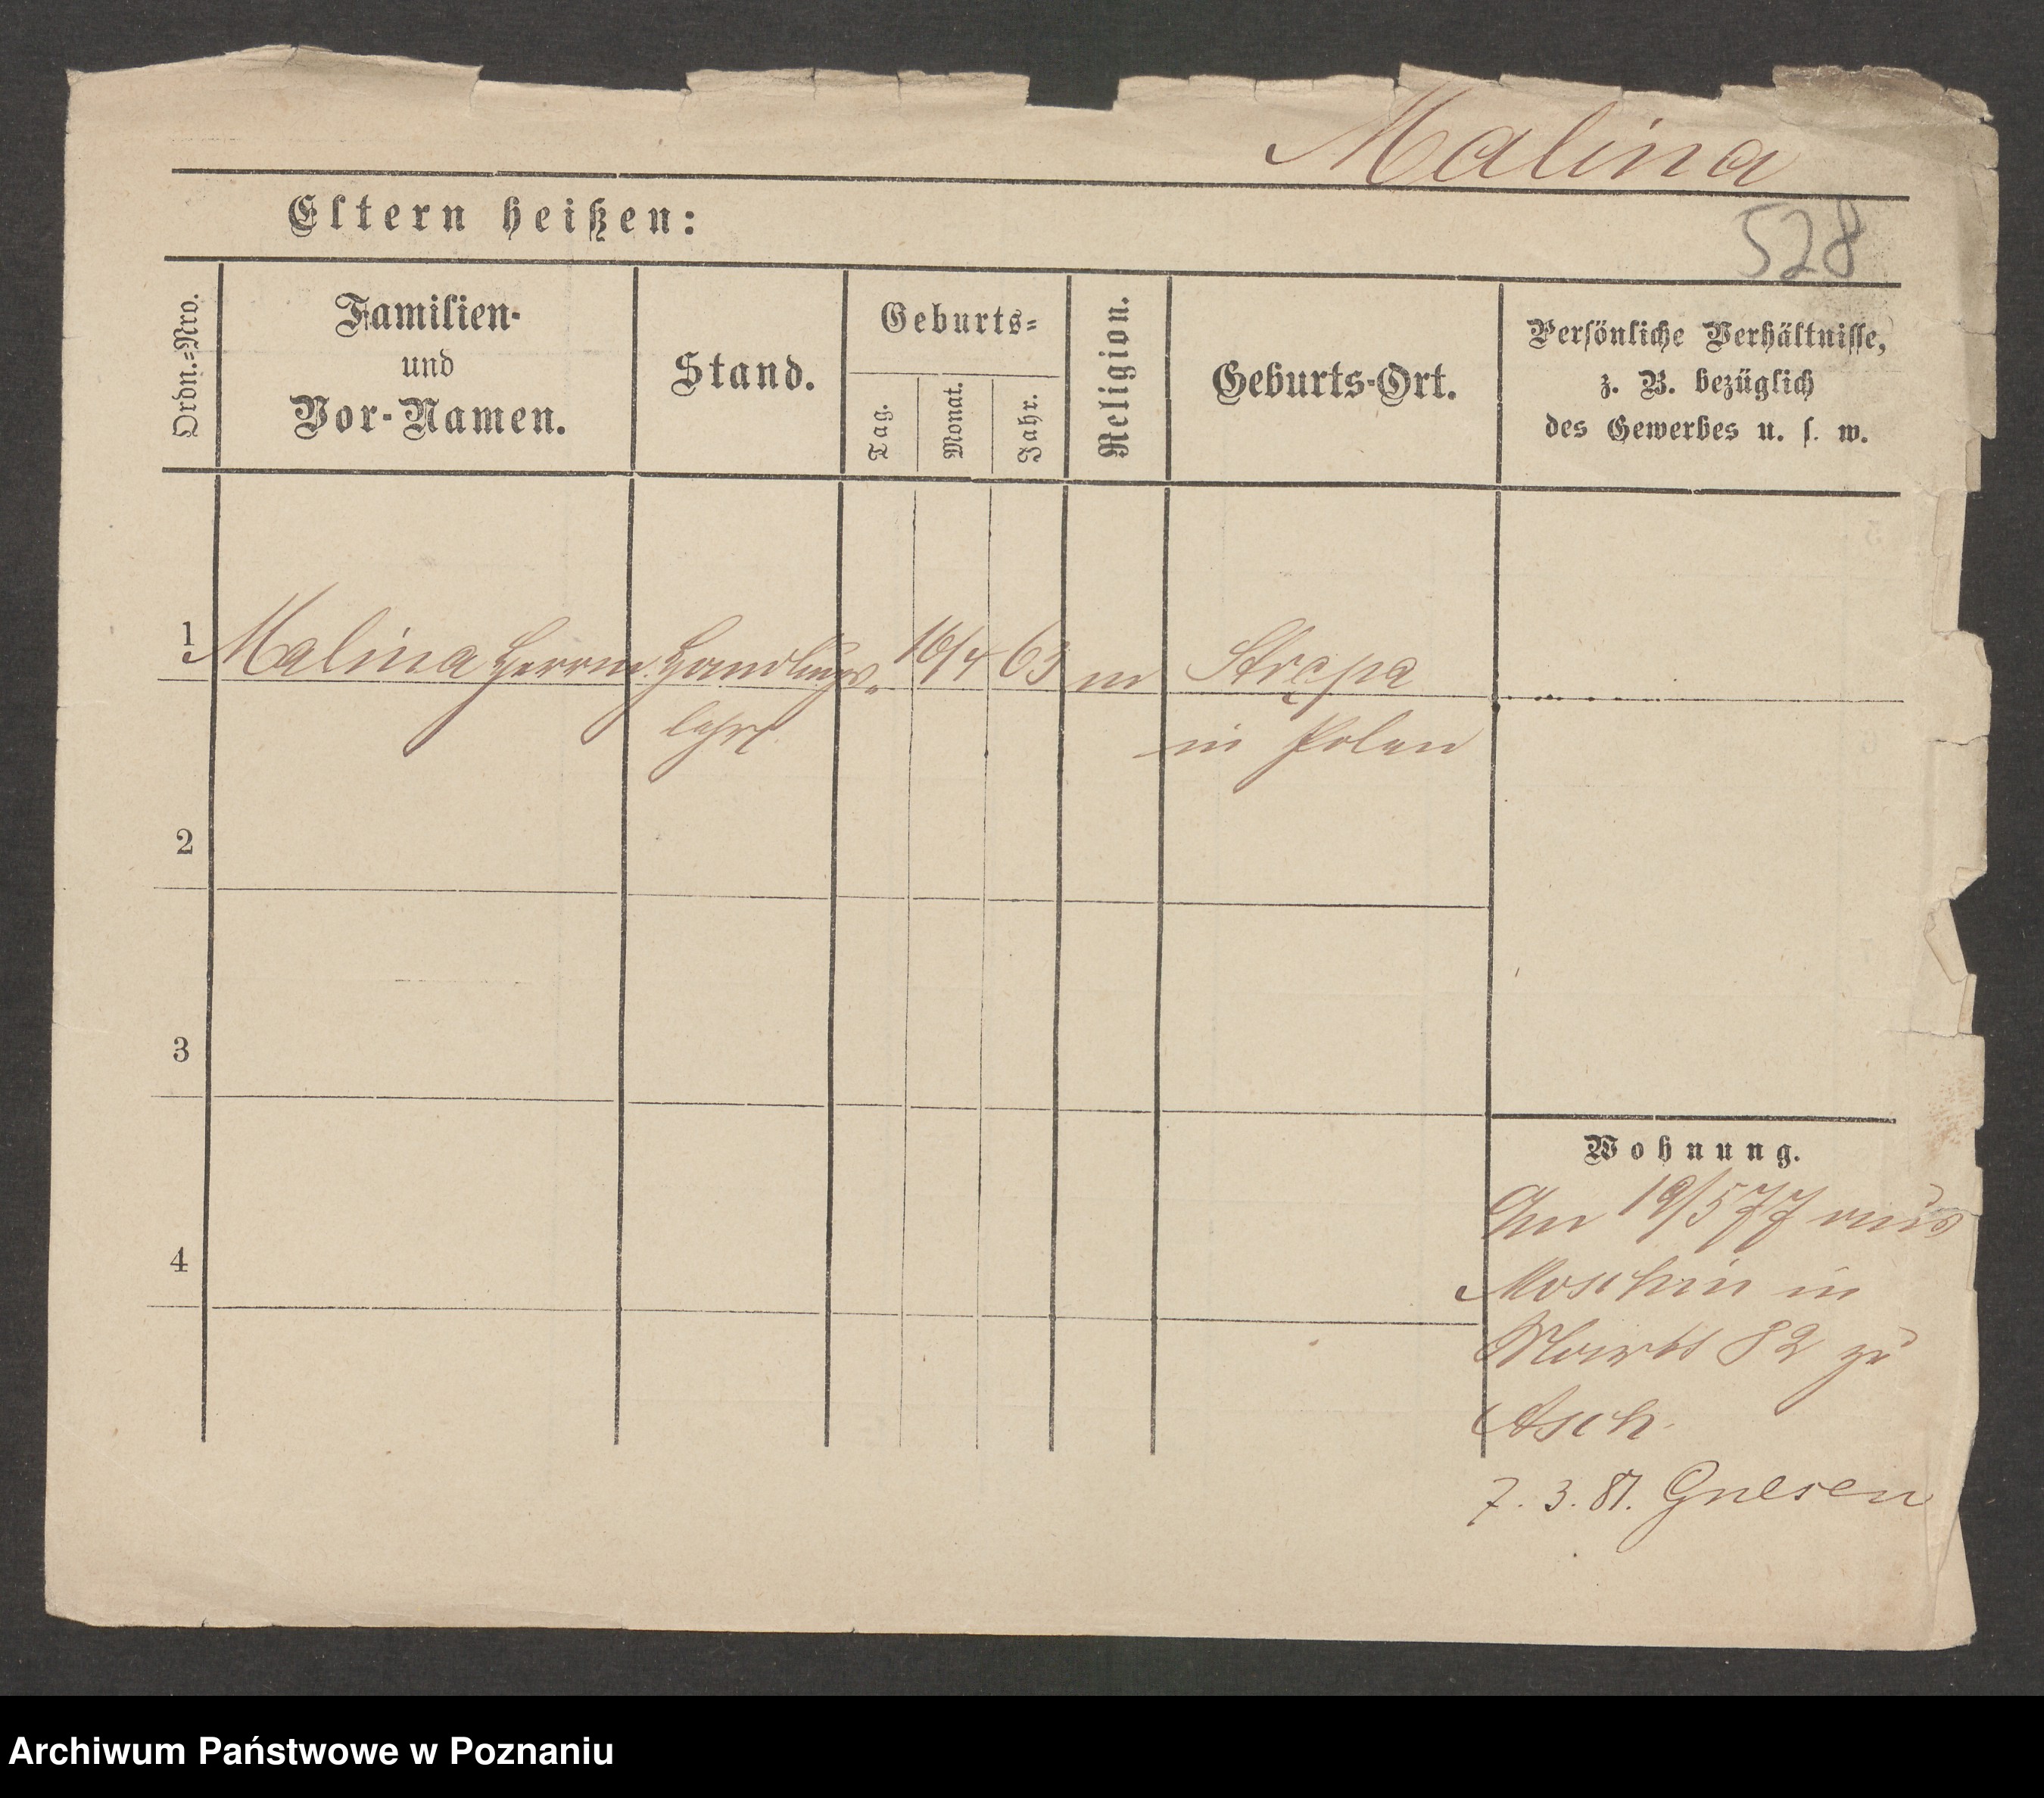 Malina
Eltern heißen:
528
Ordn.=Nro.
Familien-
und
Vor-Namen.
Stand.
Geburts=
Tag.
Monat.
Jahr.
Religion.
Geburts-Ort.
Persönliche Verhältnisse,
z. B. bezüglich
des Gewerbes u. s. w.
1 Malina Herrm. Handlungs- 16/4 63 m Strępa
lehrl. in Polen
2
3
4
Wohnung.
An 19/5 77 aus
Moschin in
Markt 82 zu
Asch.
7. 3. 81. Gnesen
Archiwum Państwowe w Poznaniu